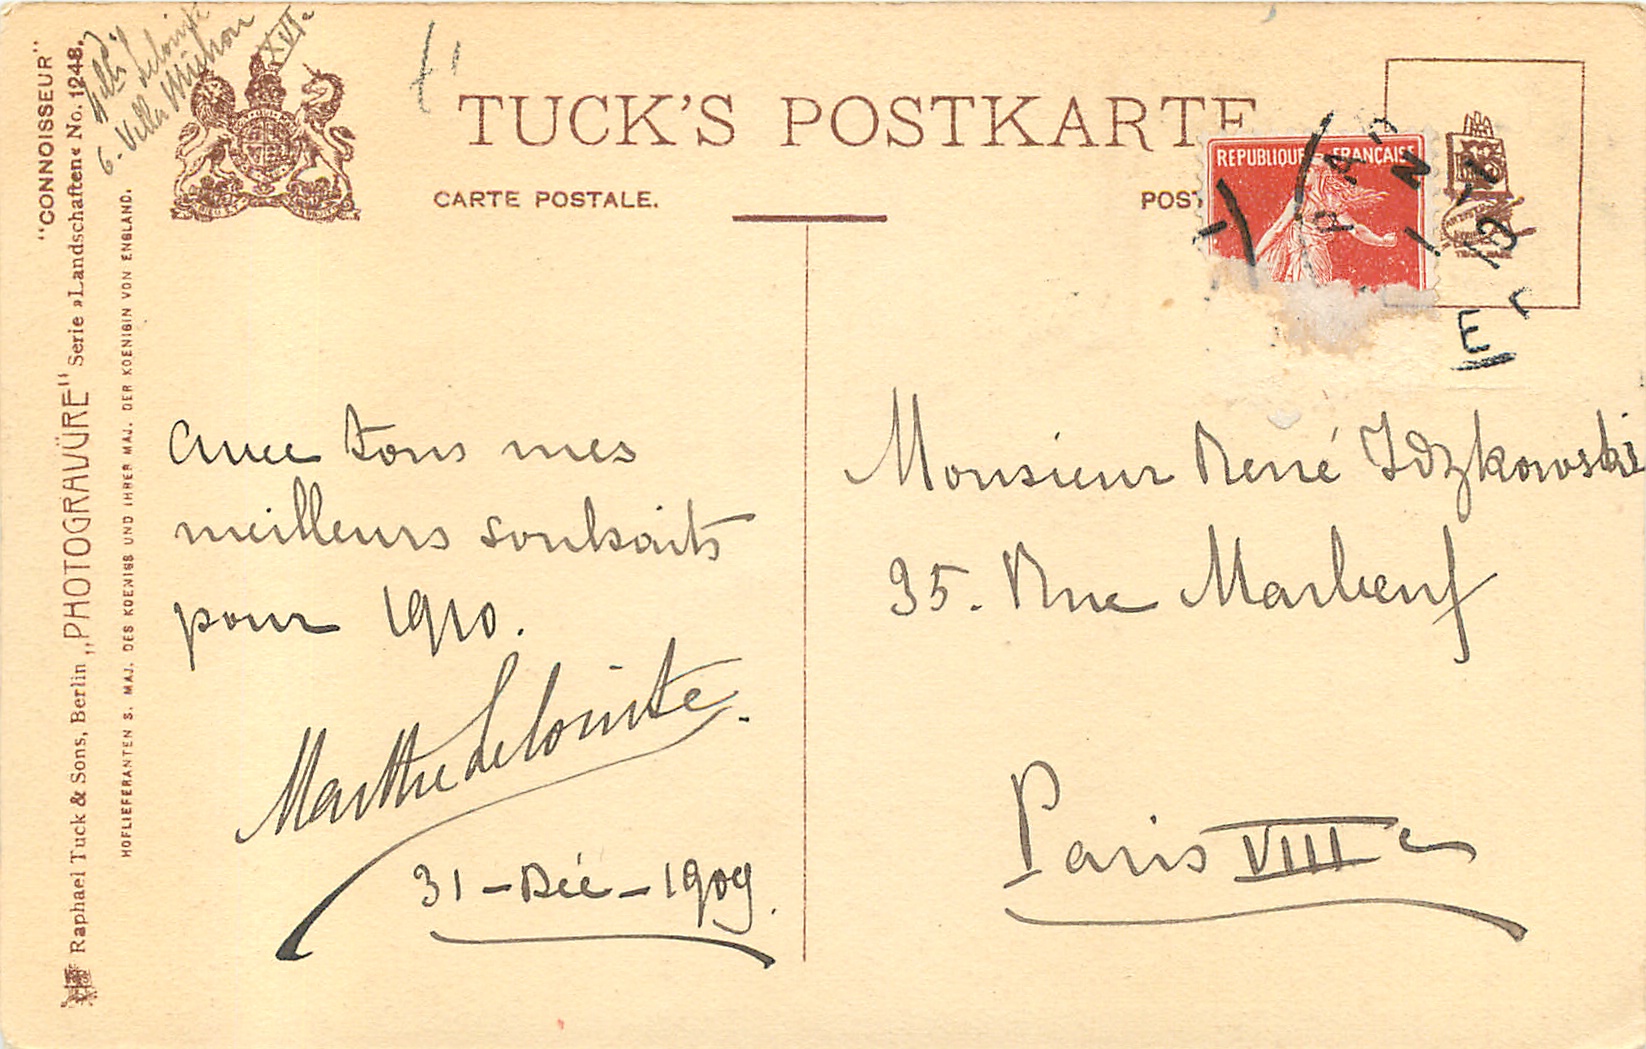 "CONNOISSEUR"
Raphael Tuck & Sons, Berlin „PHOTOGRAVÜRE" Serie »Landschaften« No. 1248.
HOFLIEFERANTEN S. MAJ. DES KOENIGS UND IHRER MAJ. DER KOENIGIN VON ENGLAND.
Lelointe
6. Villa Michon
XVIe
TUCK'S POSTKARTE
CARTE POSTALE.
POST
REPUBLIQUE FRANÇAISE
E
avec tous mes
meilleurs souhaits
pour 1910.
Marthe Lelointe.
31 - Déc - 1909.
Monsieur René Idzkowski
35. Rue Marbeuf
Paris VIIIe